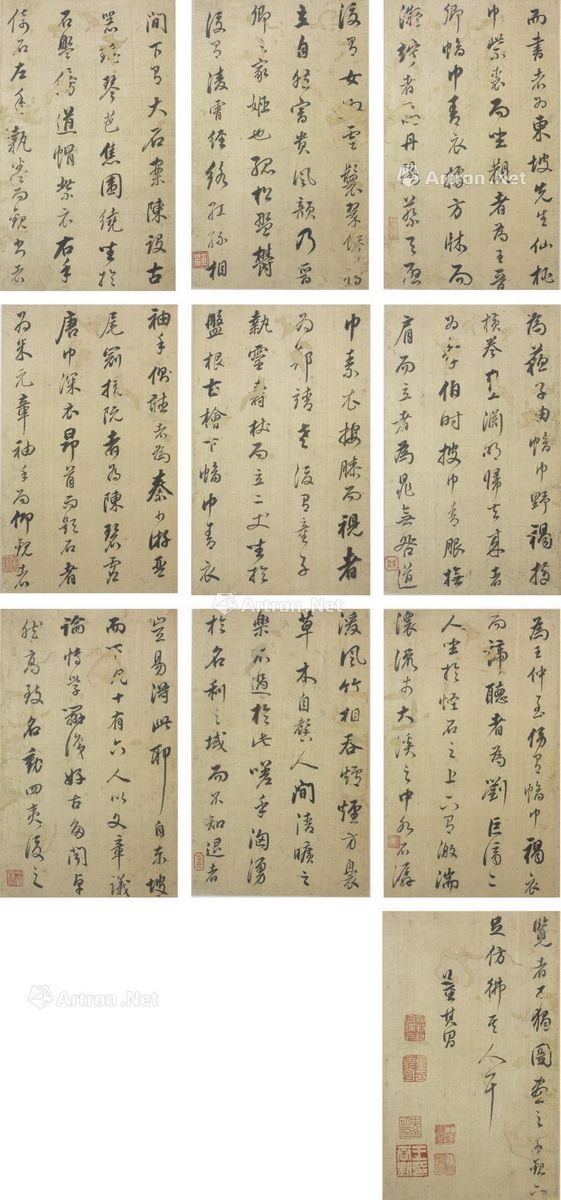 而書者為東坡先生仙桃
巾紫裘而坐觀者為王晉
卿幅巾青衣據方牀而
凝竚者為丹陽蔡天啟
後有女奴雲鬟翠飾侍
立自然富貴風韻乃晉
卿之家姬也孤松盤鬱
後有凌霄纏絡紅綠相
間下有大石案陳設古
器瑤琴芭蕉圍繞坐於
石盤傍道帽紫衣右手
倚石左手執卷而觀書者
為蘇子由幅巾野褐據
橫卷畫淵明歸去來者
為李伯時披巾青服撫
肩而立者為晁無咎道
巾素衣按膝而視者
為鄭靖老後有童子
執靈壽杖而立二人坐於
盤根古檜下幅巾青衣
袖手側聽者為秦少游琴
尾冠撥阮者為陳碧虛
唐巾深衣昂首而題石者
為米元章袖手而仰觀者
為王仲至傍有幅巾褐衣
而諦聽者為劉巨濟二
人坐於怪石之上下有激湍
潨流於大溪之中水石潺
湲風竹相吞爐煙方裊
草木自馨人間清曠之
樂不過於此嗟乎洶湧
於名利之域而不知退者
豈易得此耶自東坡
而下凡十有六人以文章議
論博學辨識好古多聞卓
然高致名動四夷後之
覽者不獨圖畫之可觀亦
足仿彿其人耳
董其昌
Artron.Net
Artron.Net
Artron.Net
Artron.Net